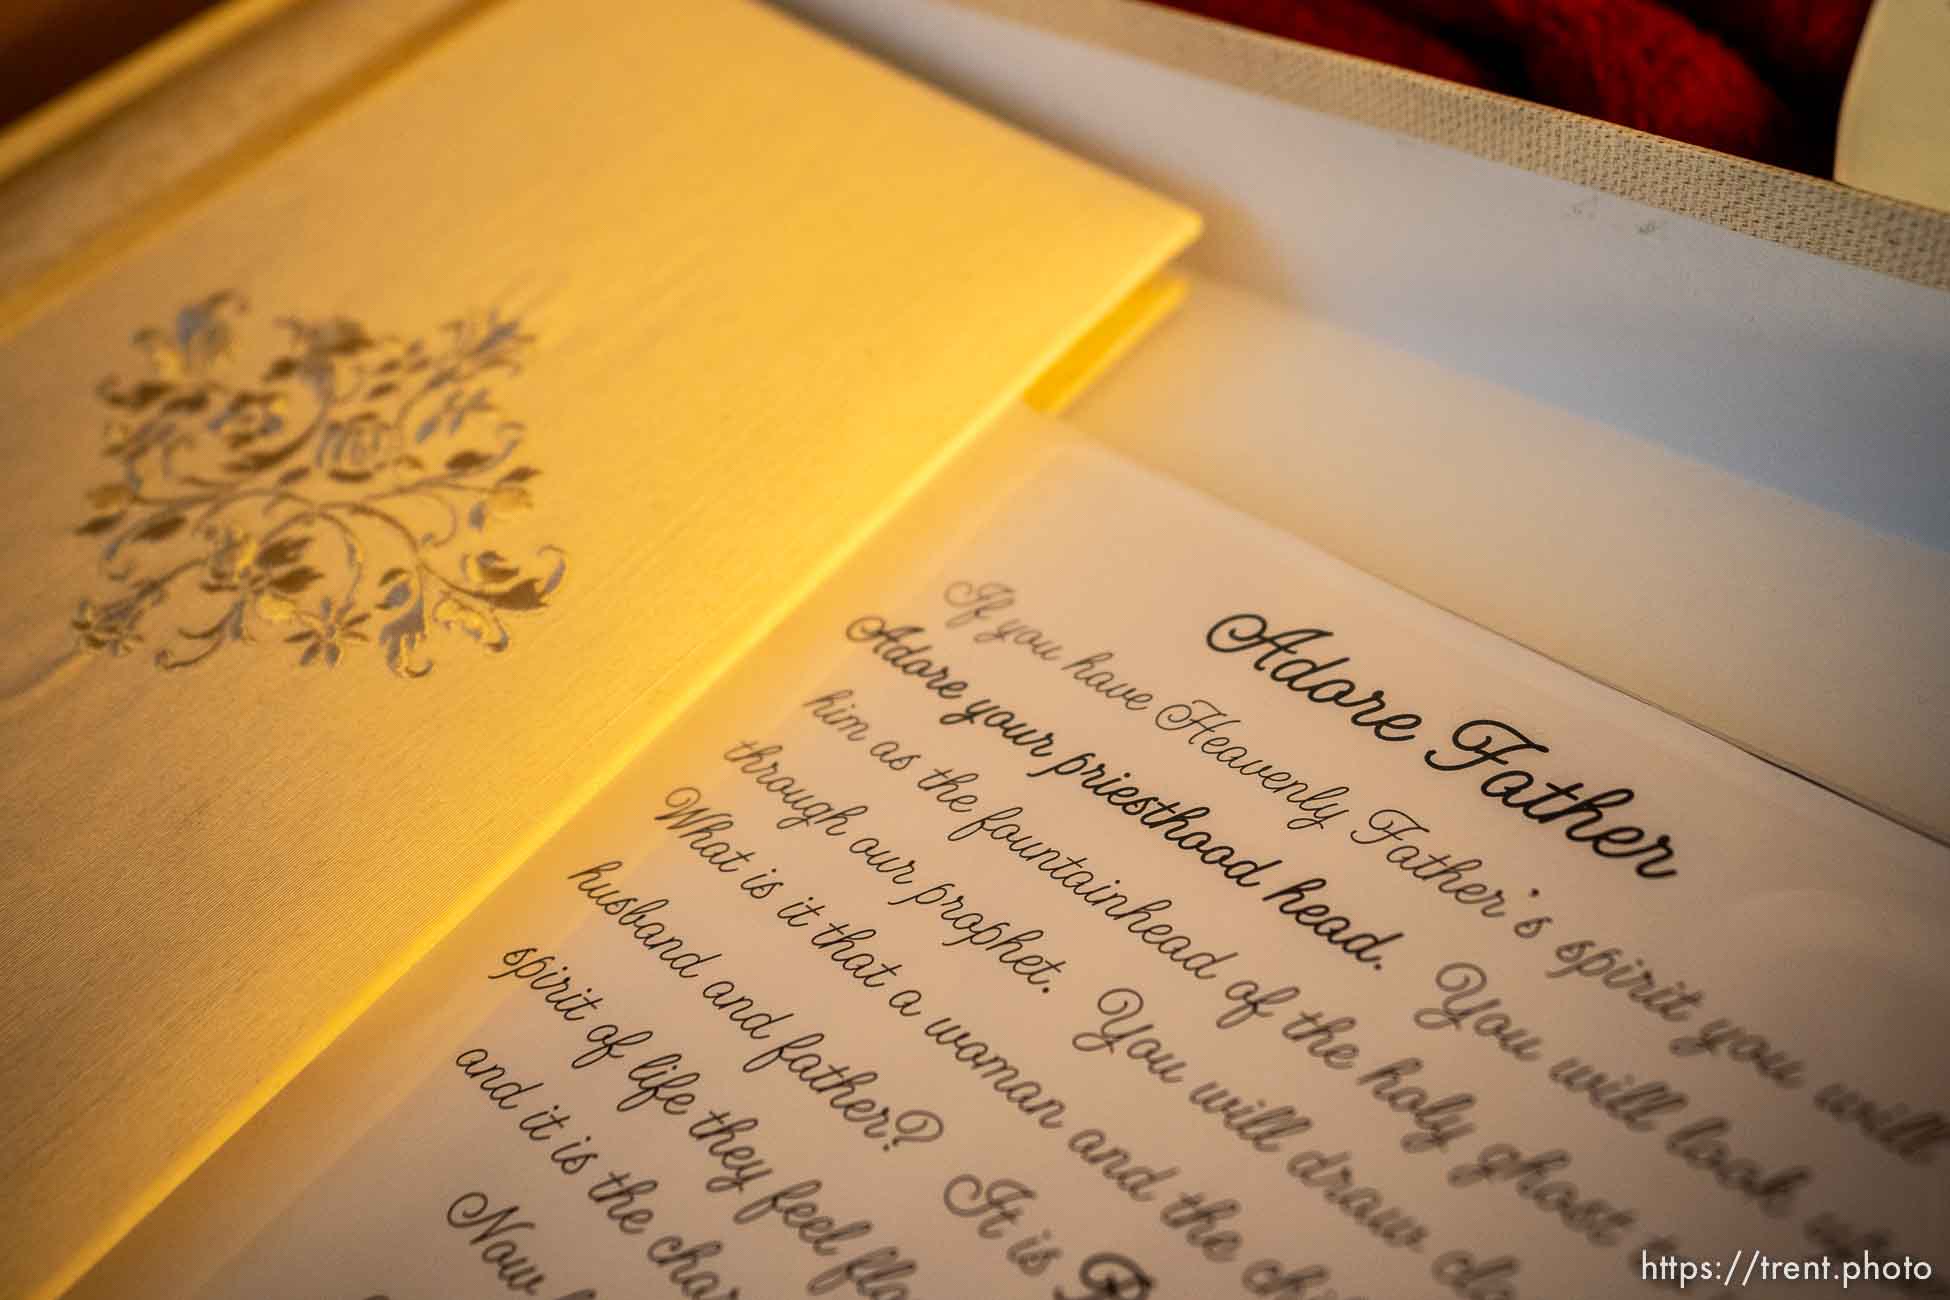 Adore Father
If you have Heavenly Father's spirit you will
Adore your priesthood head. You will look
him as the fountainhead of the holy ghost to
through our prophet. You will draw
What is it that a woman and the
husband and father? It is
spirit of life they feel
and it is the
Now
https://trent.photo